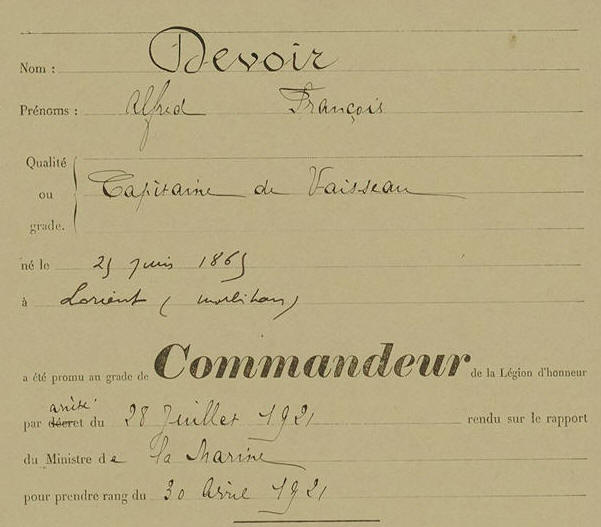 Nom : Devoir
Prénoms : Alfred François
Qualité
ou
grade.
Capitaine de Vaisseau
né le 25 juin 1865
à Lorient (Morbihan)
a été promu au grade de Commandeur de la Légion d'honneur
arrêté
par décret du 28 Juillet 1921 rendu sur le rapport
du Ministre de la Marine
pour prendre rang du 30 Avril 1921